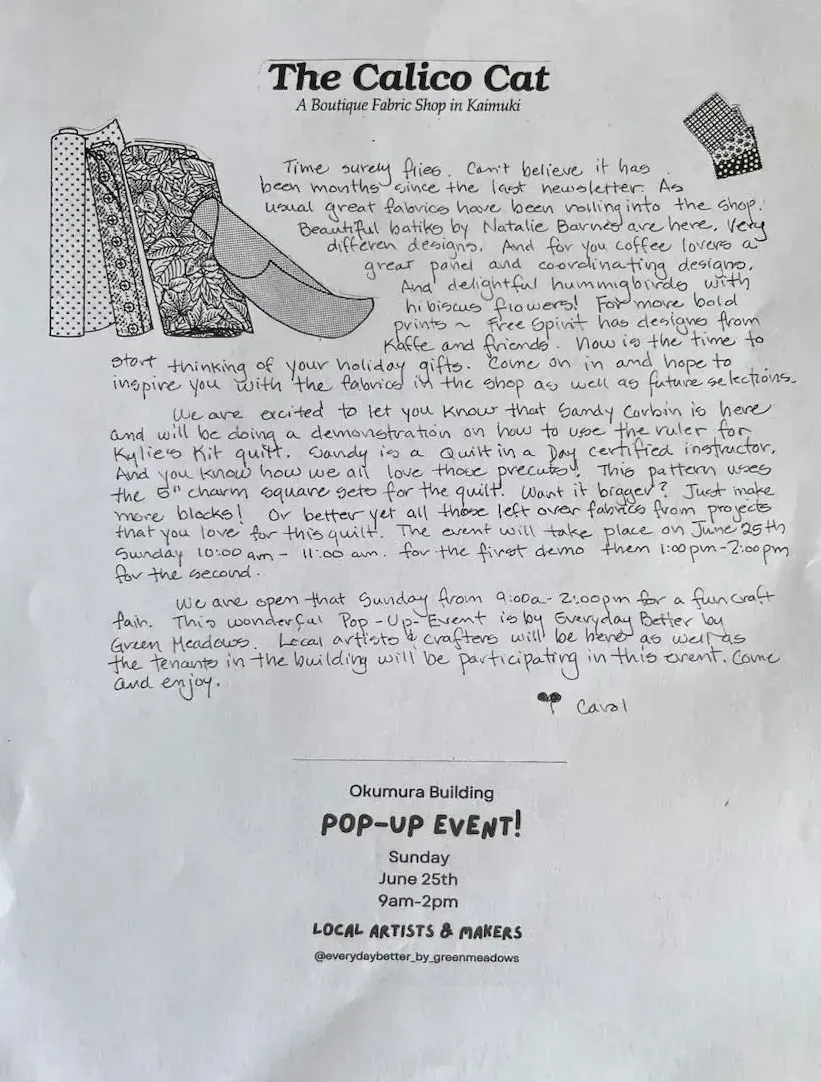 The Calico Cat
A Boutique Fabric Shop in Kaimuki
Time surely flies. Can't believe it has
been months since the last newsletter. As
usual great fabrics have been rolling into the shop.
Beautiful batiks by Natalie Barnes are here. Very
differen designs. And for you coffee lovers a
great panel and coordinating designs.
And delightful hummigbirds with
hibiscus flowers! For more bold
prints ~ Free Spirit has designs from
Kaffe and friends. Now is the time to
start thinking of your holiday gifts. Come on in and hope to
inspire you with the fabrics in the shop as well as future selections.
We are excited to let you know that Sandy Corbin is here
and will be doing a demonstration on how to use the ruler for
Kylie's Kit quilt. Sandy is a Quilt in a Day certified instructor.
And you know how we all love those precuts! This pattern uses
the 5" charm square sets for the quilt. Want it bigger? Just make
more blocks! Or better yet all those left over fabrics from projects
that you love for this quilt. The event will take place on June 25th
Sunday 10:00 am - 11:00 am. for the first demo them 1:00pm-2:00pm
for the second.
We are open that Sunday from 9:00a - 2:00pm for a fun craft
fair. This wonderful Pop-Up-Event is by Everyday Better by
Green Meadows. Local artists & crafters will be here as well as
the tenants in the building will be participating in this event. Come
and enjoy.
Carol
Okumura Building
POP-UP EVENT!
Sunday
June 25th
9am-2pm
LOCAL ARTISTS & MAKERS
@everydaybetter_by_greenmeadows